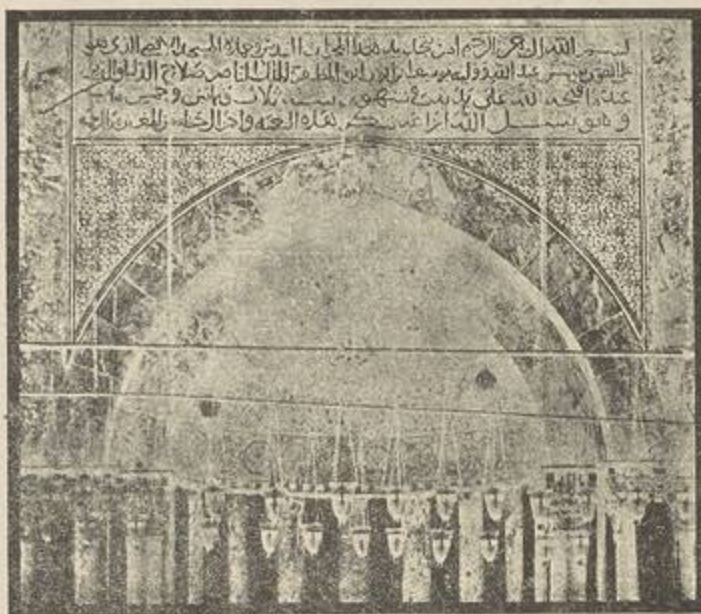 بسم الله الرحمن الرحيم امر بتجديد هذا المحراب المقدس وعمارة المسجد الاقصى الذي هو على
التقوى مؤسس عبد الله ووليه يوسف بن ايوب ابو المظفر الملك الناصر صلاح الدنيا والدين
عندما فتحه الله على يديه في شهور سنة ثلاث وثمانين وخمس مائة
وهو يسئل الله ايزاعه شكر هذه النعمة واجزال حظه من المغفرة والرحمة